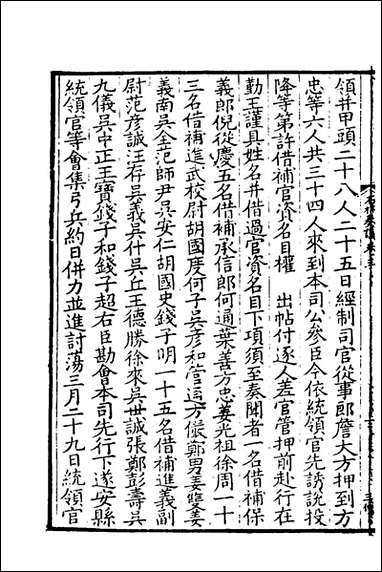 領并甲頭二十八人二十五日經制司官從事郎詹大方押到方
忠等六人共三十四人來到本司公參臣今依統領官先誘說投
降等第許借補官資名目權　出帖付逐人差官管押前赴行在
勤王謹具姓名并借過官資名目下項須至奏聞者一名借補保
義郎倪從慶五名借補承信郎何通葉善方忠姜光祖徐周一十
三名借補進武校尉胡國度何子吳彥和管這方儼鄭男姜雙姜
義南吳全范師尹吳安仁胡國史錢子明一十五名借補進義副
尉范彥誠汪存吳義吳什吳丘王德勝徐來吳世誠張鄭彭壽吳
九儀吳中正王寶錢子和錢子超右臣勘會本司先行下遂安縣
統領官等會集弓兵約日併力並進討蕩三月二十九日統領官